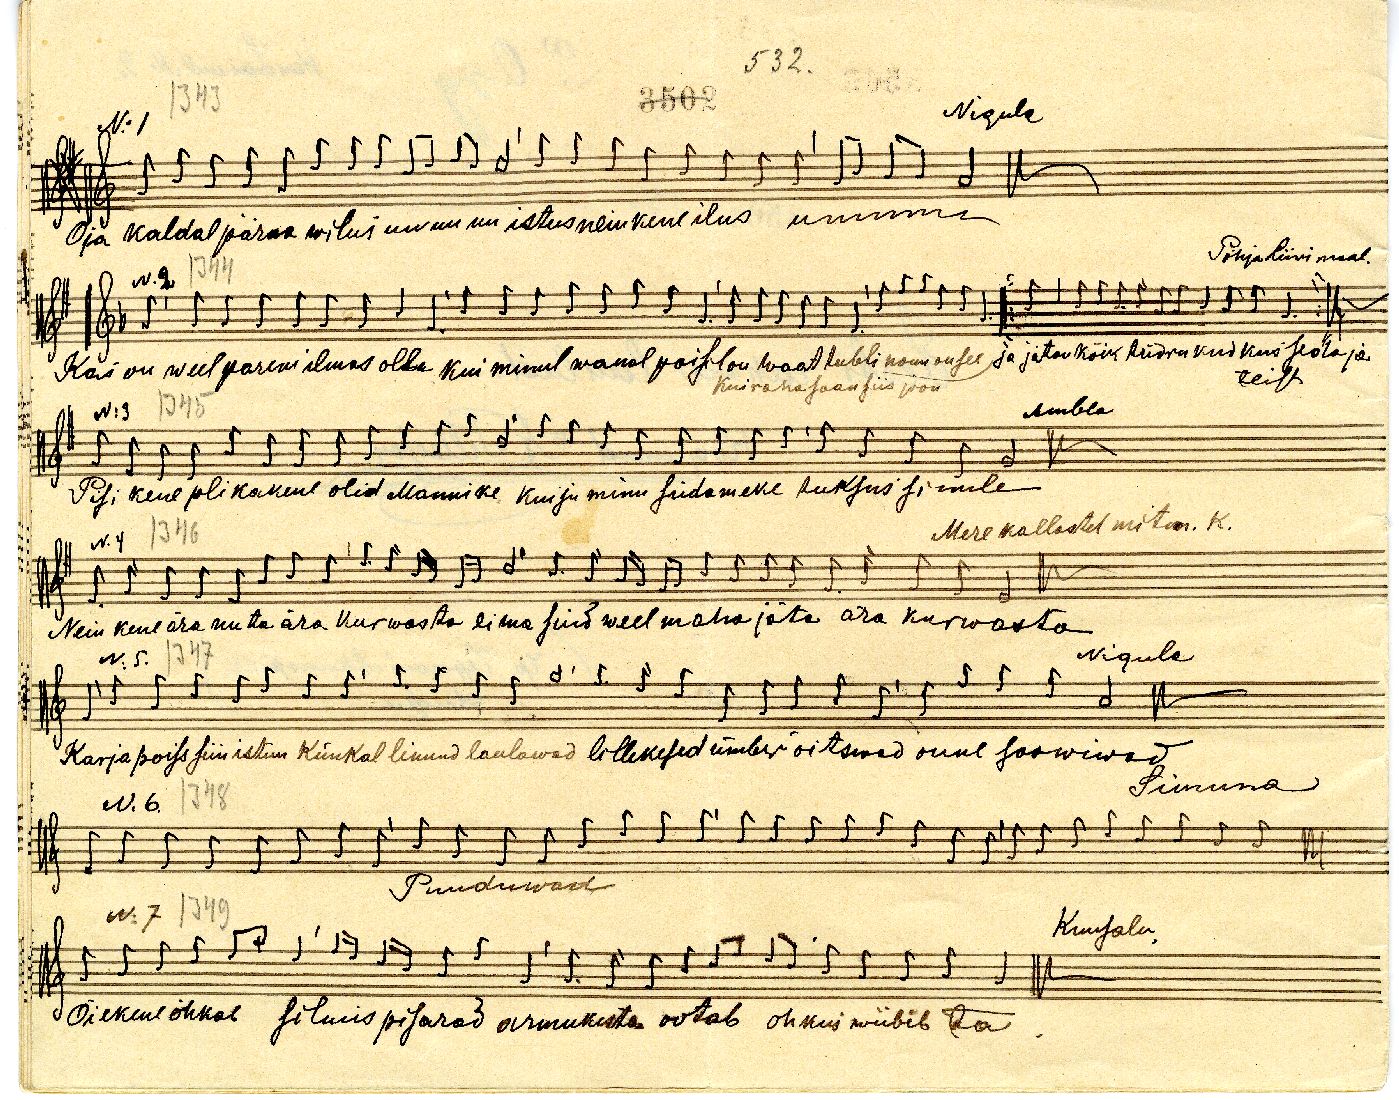 532.
3502
N: 1 1343 Nigula
Oja kaldal päraa wilus um um um istus neiukene ilus
N. 2 1344 Põhja liiwi maal.
Kas on weel paremi ilmas olla kui minul wanal poisil on waat tubli noms on see ja jätan kõik tüdrukud kus seda ja teist
kui raha saan siis
N: 3 1345 Ambla
Pisikene plikakene olid Mannike kui ju minu südameke tuksus sinule
N. 4 1346 Mere kallastel mitm. K.
Neiukene ära nuta ära kurwasta ei ma sind weel maha jäta ära kurwasta
N: 5. 1347 Nigula
Karja poiss siin istun künkal linnud laulawad lillekesed ümber õitswad onne soowiwad
N. 6. 1348 Simuna
Puuduwad
N: 7 1349 Kuusalu.
Õiekene õhkal silmis pisarad armukesta ootab oh kus wiibib ta